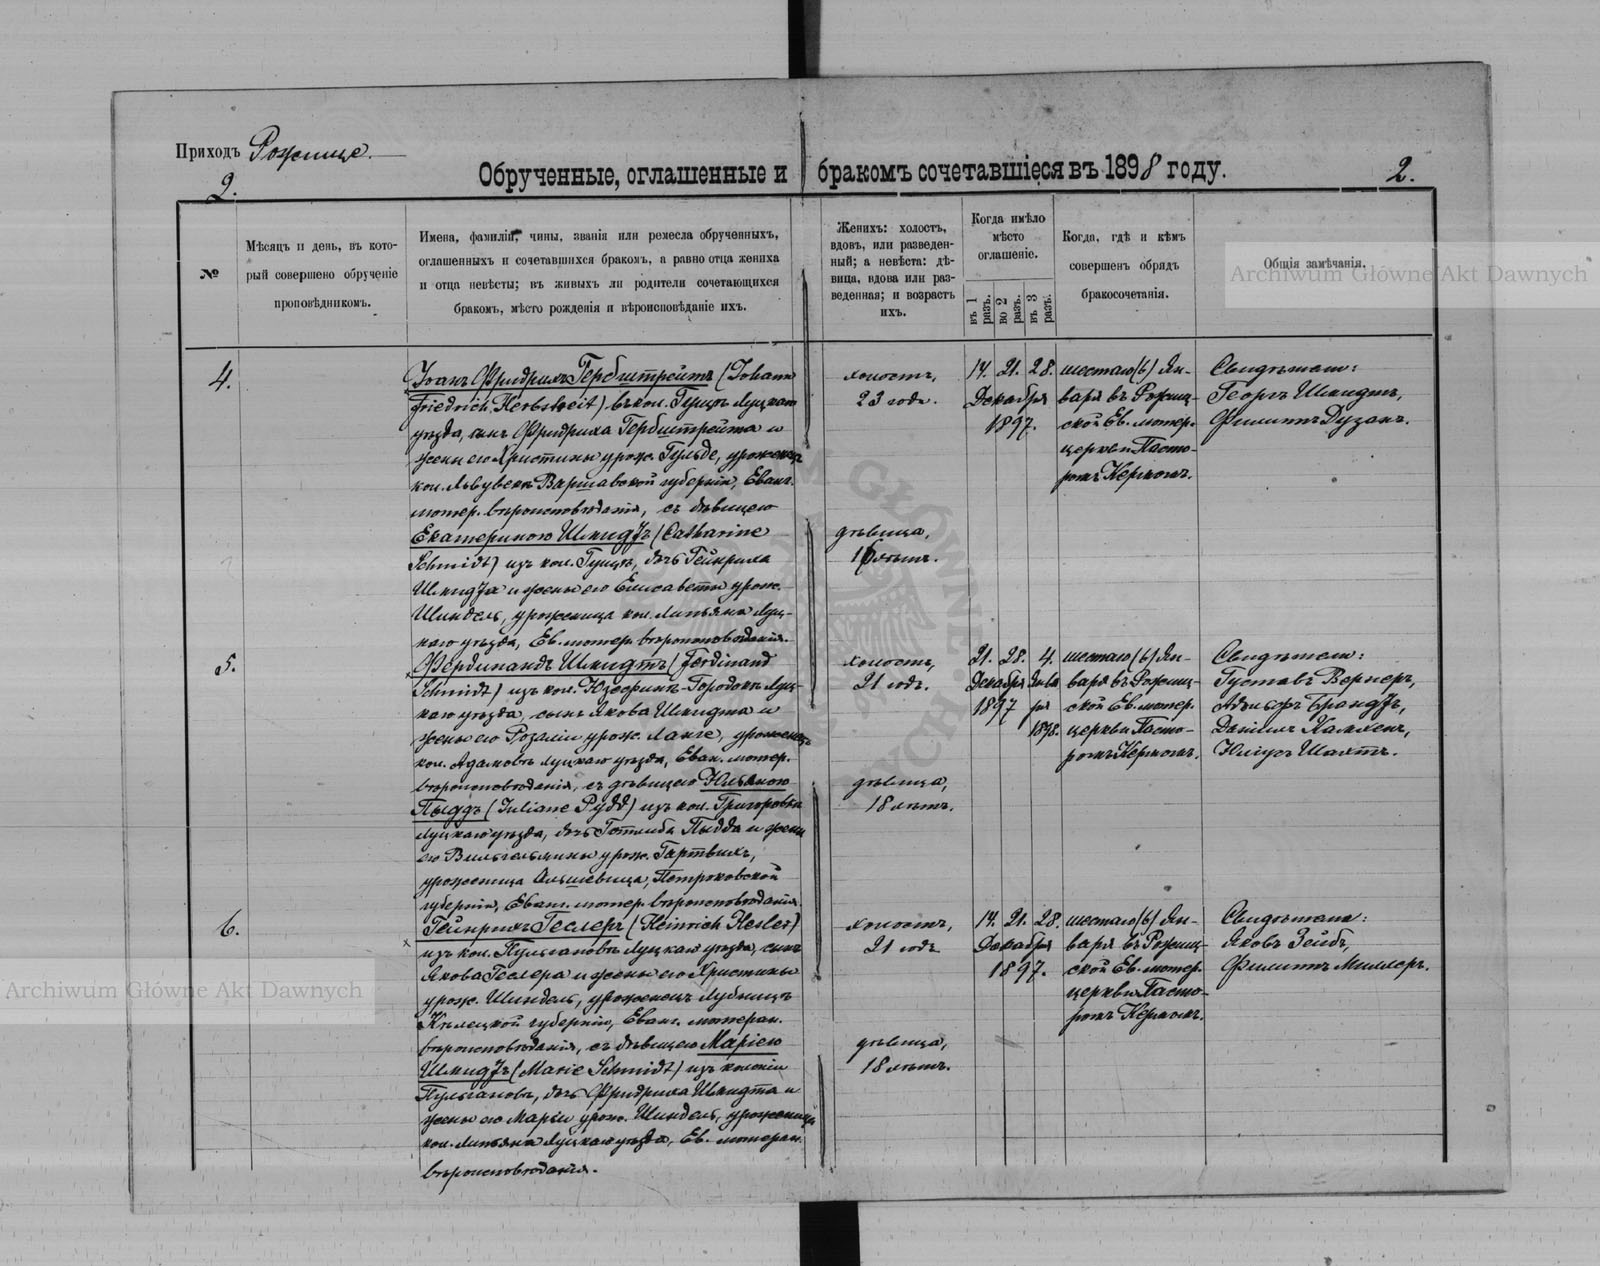 Приходъ Рожище.
2.
Обрученные, оглашенные и бракомъ сочетавшіеся въ 1898 году.
2.
№
Мѣсяцъ и день, въ кото-
рый совершено обрученіе
проповѣдникомъ.
Имена, фамиліи, чины, званія или ремесла обрученныхъ,
оглашенныхъ и сочетавшихся бракомъ, а равно отца жениха
и отца невѣсты; въ живыхъ ли родители сочетающихся
бракомъ, мѣсто рожденія и вѣроисповѣданіе ихъ.
Женихъ: холостъ,
вдовъ, или разведен-
ный; а невѣста: дѣ-
вица, вдова или раз-
веденная; и возрастъ
ихъ.
Когда имѣло
мѣсто
оглашеніе.
въ 1 разъ.
во 2 разъ.
въ 3 разъ.
Когда, гдѣ и кѣмъ
совершенъ обрядъ
бракосочетанія.
Общія замѣчанія.
Archiwum Główne Akt Dawnych
4.
Іоанъ Фридрихъ Гербштрейтъ (Johann
Friedrich Herbstreit) въ кол. Луцкаго
уѣзда, сынъ Фридриха Гербштрейта и
жены его Христины урож. Гульде, уроженецъ
кол. Варшавской губерніи, Еванг.
лютер. вѣроисповѣданія, съ дѣвицею
Екатериною Шмидтъ (Catharine
Schmidt) изъ кол. дочь Гейнриха
Шмидта и жены его Елисаветы урож.
Шиндель, уроженица кол. Липъянъ Луц-
каго уѣзда, Ев. лютер. вѣроисповѣданія.
холостъ,
23 года.
дѣвица,
лѣтъ.
14. 21. 28.
Декабря
1897.
шестаго (6) Ян-
варя въ Рожищ-
ской Ев. лютер.
церкви Пасто-
ромъ Кермомъ.
Свидѣтели:
Георгъ Шмидтъ,
Филиппъ Дузанъ.
5.
Фердинандъ Шмидтъ (Ferdinand
Schmidt) изъ кол. Юзефинъ-Городокъ Луц-
каго уѣзда, сынъ Якова Шмидта и
жены его Розаліи урож. Ланге, уроженецъ
кол. Адамовъ Луцкаго уѣзда, Еван. лютер.
вѣроисповѣданія, съ дѣвицею Юліаною
Пыддъ (Juliane Pydd) изъ кол. Григоровка
Луцкаго уѣзда, дочь Готлиба Пыдда и жены
его Вильгельмины урож. Гартвихъ,
уроженица Петроковской
губерніи, Еванг. лютер. вѣроисповѣданія.
холостъ,
21 годъ.
дѣвица,
18 лѣтъ.
21. 28. 4.
Декабря Янва
1897 ря
1898.
шестаго (6) Ян-
варя въ Рожищ-
ской Ев. лютер.
церкви Пасто-
ромъ Кермомъ.
Свидѣтели:
Густавъ Вернеръ,
Адольфъ Брандтъ,
Даніилъ
Юліусъ Шахтъ.
6.
Гейнрихъ Геслеръ (Heinrich Hesler)
изъ кол. Пульгановъ Луцкаго уѣзда, сынъ
Якова Геслера и жены его Христины
урож. Шиндель, уроженецъ
Кѣлецкой губерніи, Еванг. лютеран.
вѣроисповѣданія, съ дѣвицею Маріею
Шмидтъ (Marie Schmidt) изъ колоніи
Пульгановъ, дочь Фридриха Шмидта и
жены его Маріи урож. Шиндель, уроженица
кол. Липъянъ Луцкаго уѣзда, Ев. лютеран.
вѣроисповѣданія.
холостъ,
21 годъ
дѣвица,
18 лѣтъ.
14. 21. 28.
Декабря
1897.
шестаго (6) Ян-
варя въ Рожищ-
ской Ев. лютер.
церкви Пасто-
ромъ Кермомъ.
Свидѣтели:
Яковъ Зейбъ,
Филиппъ Миллеръ.
Archiwum Główne Akt Dawnych